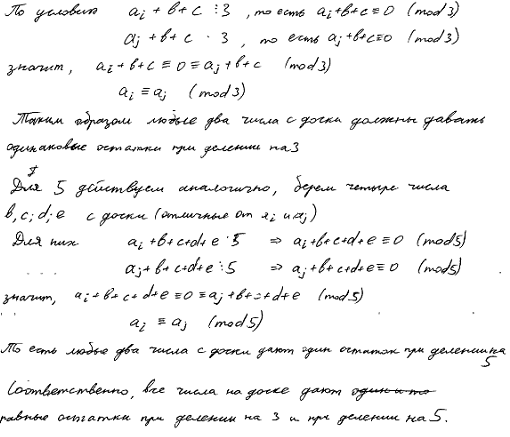 По условию a_i + b + c ⋮ 3 , то есть a_i + b + c ≡ 0 (mod 3)
a_j + b + c ⋮ 3 , то есть a_j + b + c ≡ 0 (mod 3)
значит, a_i + b + c ≡ 0 ≡ a_j + b + c (mod 3)
a_i ≡ a_j (mod 3)
Таким образом любые два числа с доски должны давать
одинаковые остатки при делении на 3
Для 5 действуем аналогично, берем четыре числа
b, c, d, e с доски (отличные от a_i и a_j)
Для них a_i + b + c + d + e ⋮ 5 ⇒ a_i + b + c + d + e ≡ 0 (mod 5)
a_j + b + c + d + e ⋮ 5 ⇒ a_j + b + c + d + e ≡ 0 (mod 5)
значит, a_i + b + c + d + e ≡ 0 ≡ a_j + b + c + d + e (mod 5)
a_i ≡ a_j (mod 5)
То есть любые два числа с доски дают один остаток при делении на 5
Соответственно, все числа на доске дают один и то
равные остатки при делении на 3 и при делении на 5.